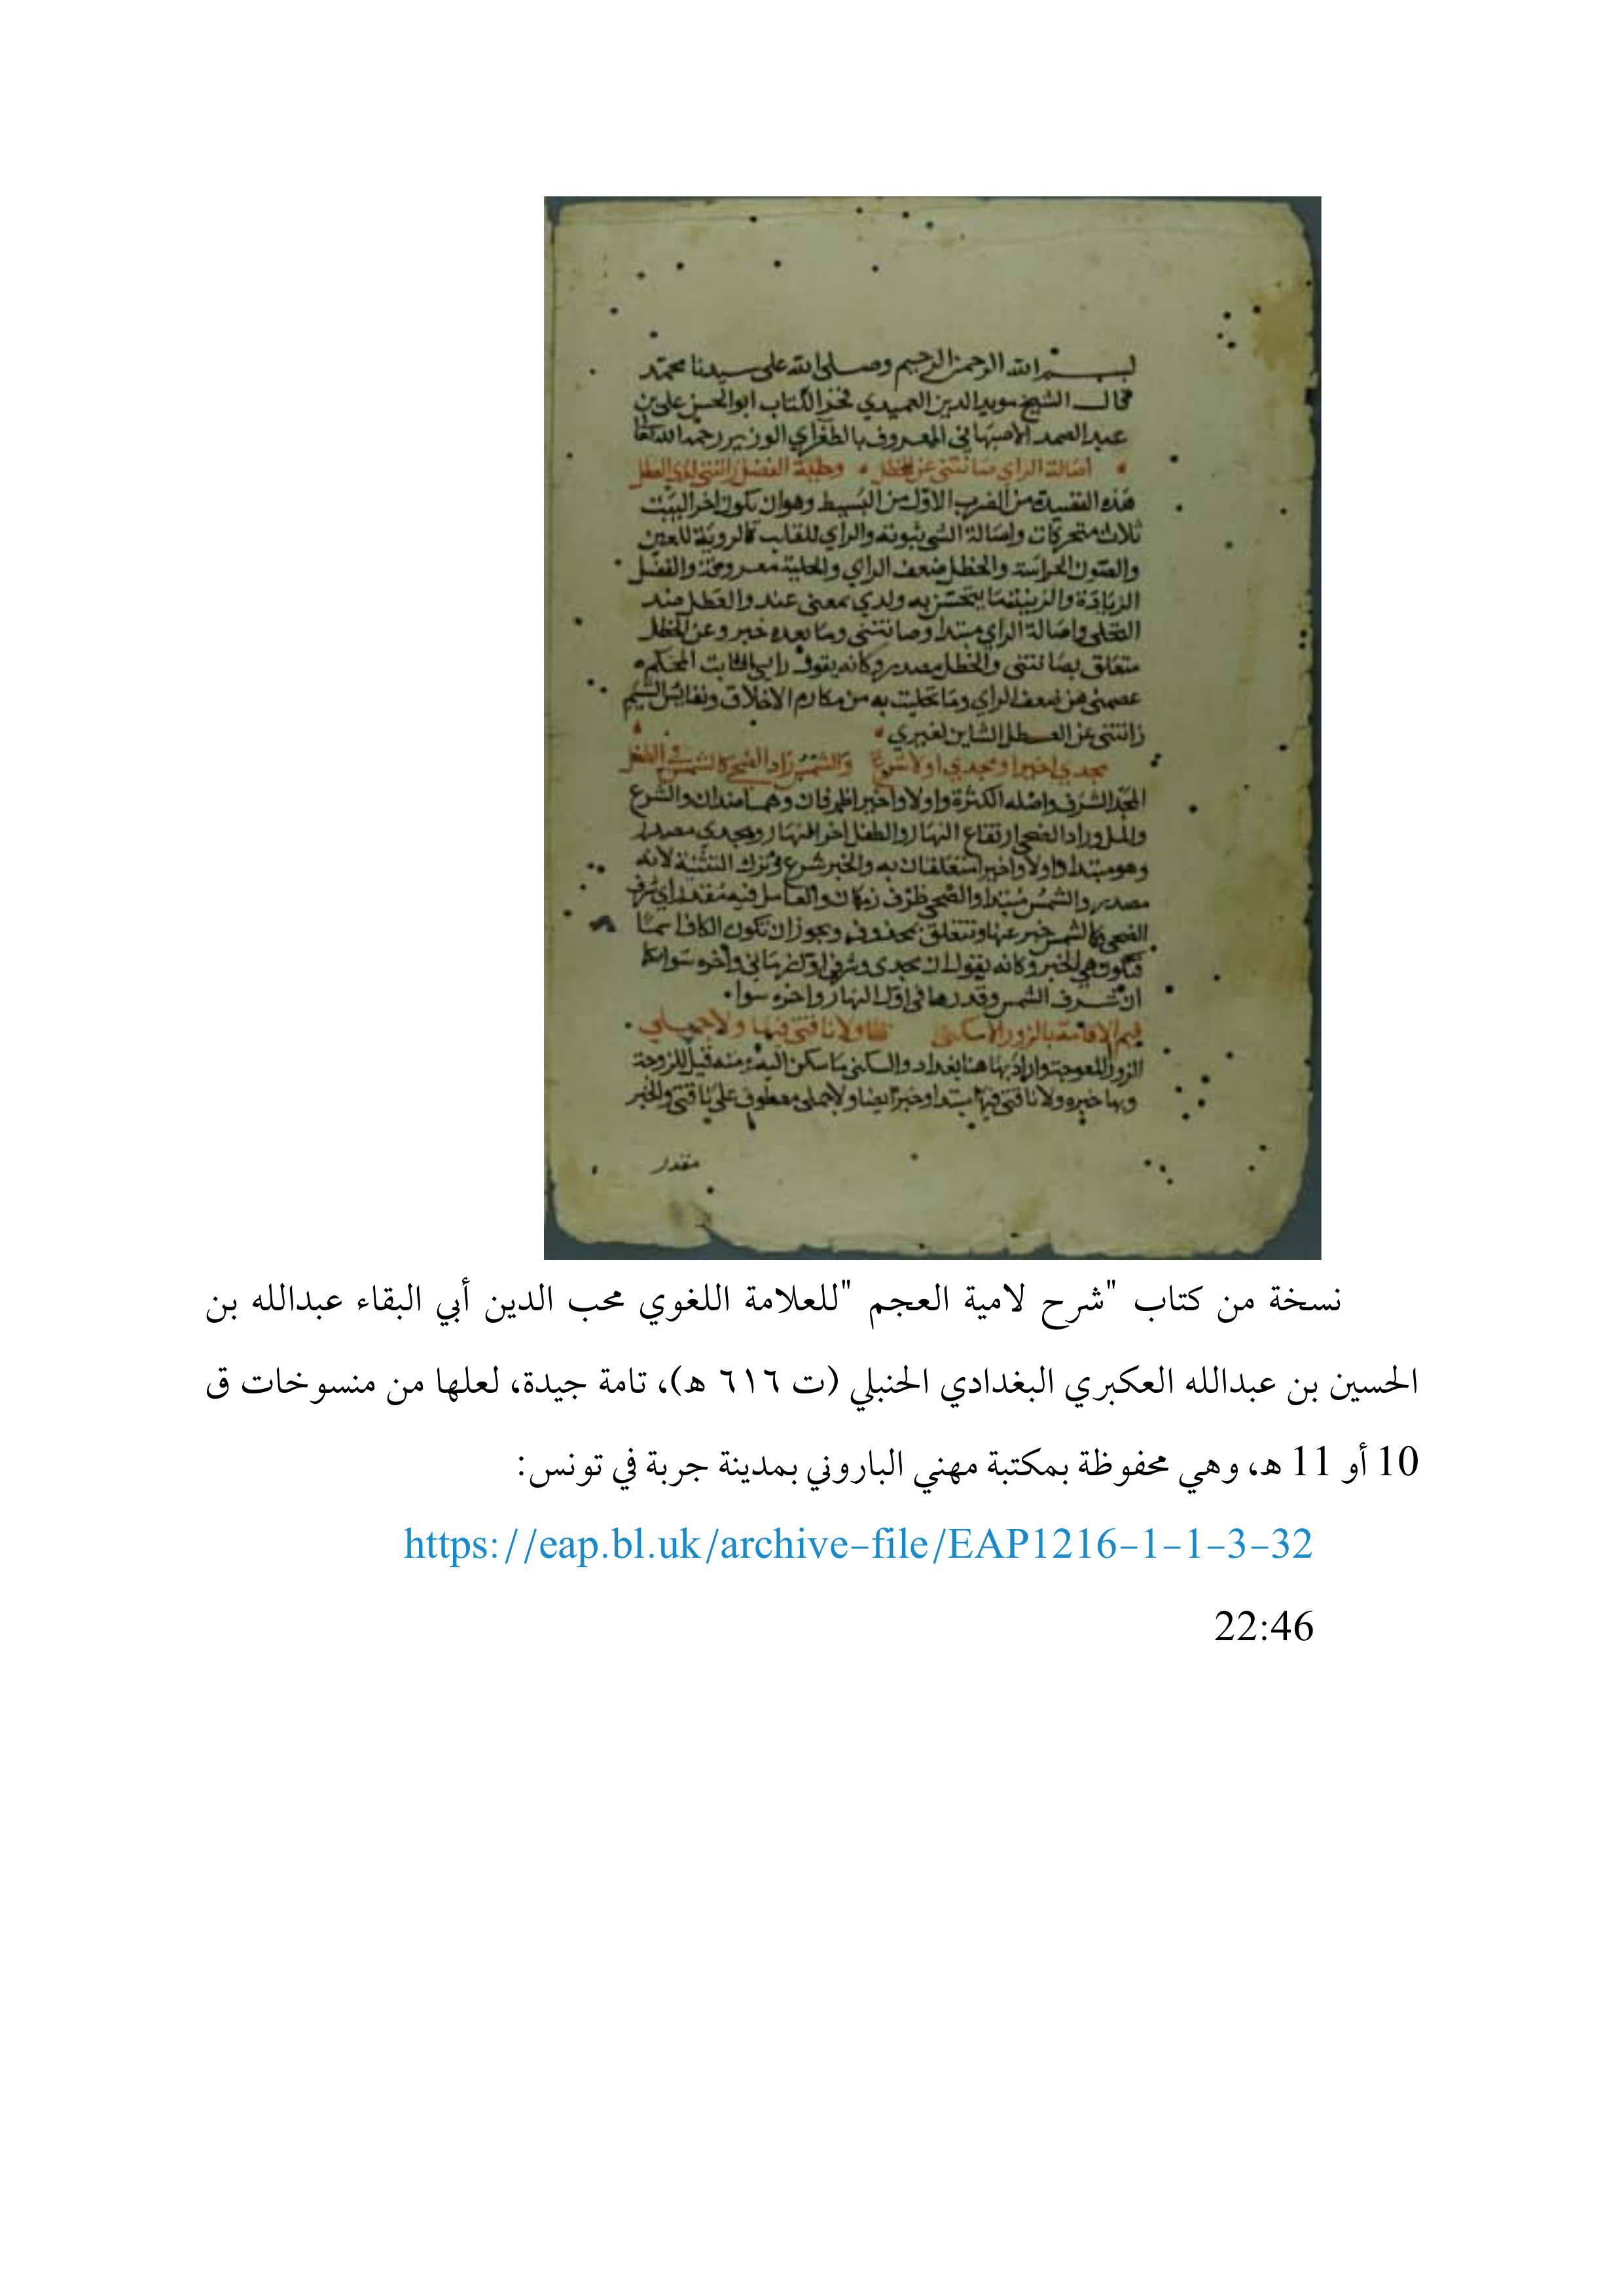 بسم الله الرحمن الرحيم وصلى الله على سيدنا محمد
قال الشيخ مويد الدين العميدي فخر الكتاب ابو الحسن علي بن
عبد الصمد الاصبهاني المعروف بالطغراي الوزير رحمه الله تعالى
اصالة الراي صانتني عن الخطل وحلية الفضل زانتني لدي العطل
هذه القصيدة من الضرب الاول من البسيط وهو ان يكون اخر البيت
ثلاث متحركات واصالة الشي ثبوته والراي للقلب كالروية للعين
والصون الحراسة والخطل ضعف الراي والحلية معروفة والفضل
الزيادة والزينة ما يتحسن به ولدي بمعنى عند والعطل ضد
التحلي واصالة الراي مبتدا وصانتني وما بعده خبر وعن الخطل
متعلق بصانتني والخطل مصدر وكانه يقول رايي الثابت المحكم
عصمني من ضعف الراي وما تحليت به من مكارم الاخلاق ونفائس الشيم
زانتني عن العطل الشاين لغيري
مجدي اخيرا ومجدي اولا شرع والشمس راد الضحى كالشمس في الطفل
المجد الشرف واصله الكثرة واولا واخيرا ظرفان وهما ضدان والشرع
وراد الضحى ارتفاع النهار والطفل اخر النهار ومجدي مصدر
وهو مبتدا واولا واخيرا متعلقان به والخبر شرع وترك التثنية لانه
مصدر والشمس مبتدا والضحى ظرف زمان والعامل فيه مقدر اي
الضحى كالشمس خبر عنها وتتعلق بمحذوف ويجوز ان تكون الكاف اسما
فتكون هي الخبر وكانه يقول ان مجدي وشرفي اول زماني واخره سوا كما
ان شرف الشمس وقدرها في اول النهار واخره سوا
فيم الاقامة بالزورا لا سكني ولا ناقتي فيها ولا جملي
الزورا المعوجة واراد بها هنا بغداد والسكن ما سكن اليه ومنه قيل للزوجة
وبها خبره ولا ناقتي فيها مبتدا وخبر ايضا ولا جملي معطوف على ناقتي والخبر
مقدر
نسخة من كتاب "شرح لامية العجم "للعلامة اللغوي محب الدين أبي البقاء عبدالله بن
الحسين بن عبدالله العكبري البغدادي الحنبلي (ت ٦١٦ هـ)، تامة جيدة، لعلها من منسوخات ق
10 أو 11 هـ، وهي محفوظة بمكتبة مهني الباروني بمدينة جربة في تونس:
https://eap.bl.uk/archive-file/EAP1216-1-1-3-32
22:46